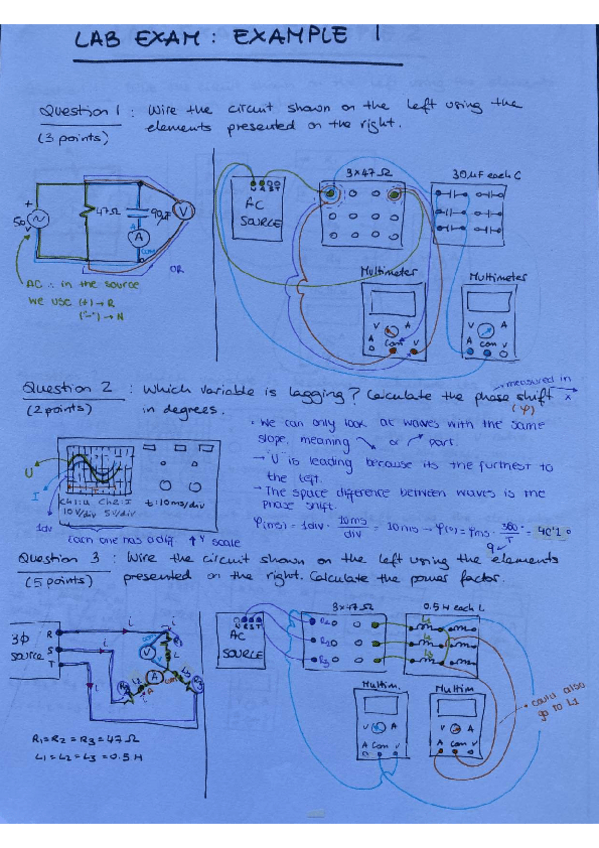 LAB EXAM: EXAMPLE 1
Question 1: Wire the circuit shown on the left using the
(3 points) elements presented on the right.
3x47Ω
30µF each C
N R S T
AC
SOURCE
+
50
V
47Ω
90µF
V
A
A
Com
OR
Multimeter
Multimeter
AC: in the source
we use (+)→R
('-')→N
V A
A Com V
V A
A Com V
Question 2: Which variable is lagging? Calculate the phase shift
measured in x
(2 points) in degrees. (φ)
• We can only look at waves with the same
slope, meaning or part.
→ "U" is leading because its the furthest to
the left.
→ The space difference between waves is the
phase shift.
U
I
Ch1:U Ch2:I t:10ms/div
10V/div 5V/div
1div
Each one has a dif. ↑Y scale
φ(ms) = 1div · 10ms/div = 10ms → φ(°) = φms · 360°/T
Question 3: Wire the circuit shown on the left using the elements
(5 points) presented on the right. Calculate the power factor.
3x47Ω
0.5H each L
3Φ
source
R
S
T
i
i
i
AC
SOURCE
R1
R2
R3
L1
Multim.
Multim
• could also
go to L1
V A
A Com V
V A
A Com V
R1=R2=R3=47Ω
L1=L2=L3=0.5H